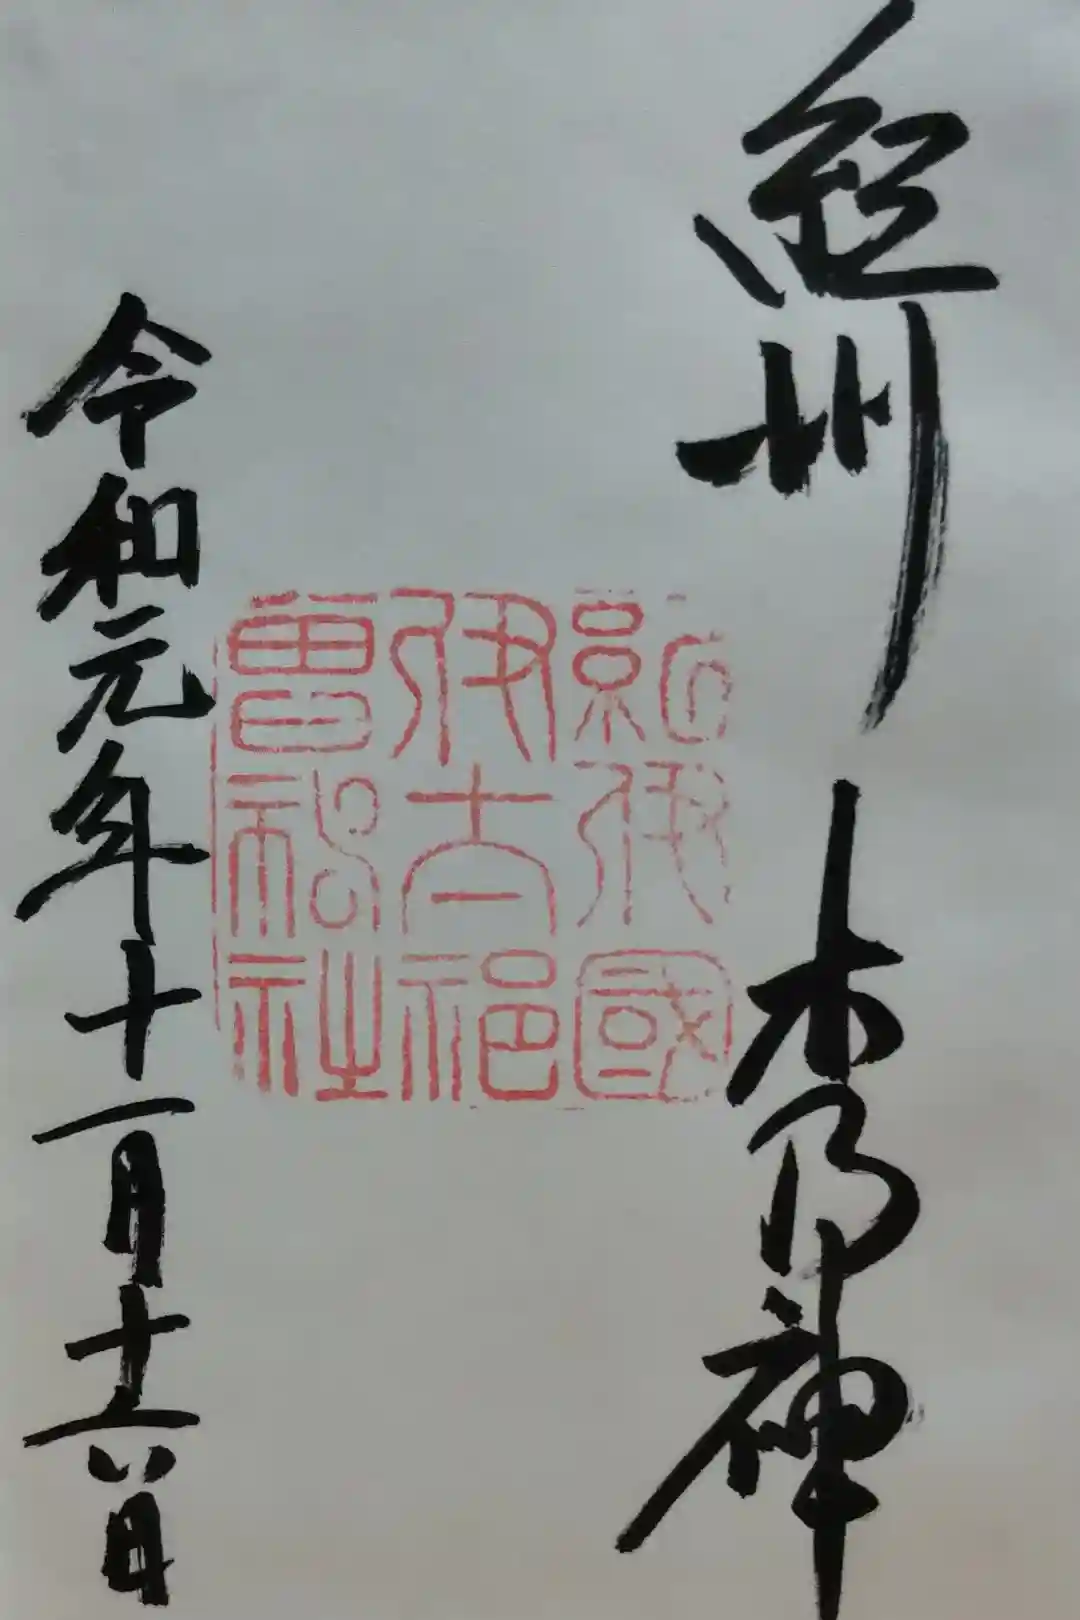 紀州　木乃神
紀伊國
伊太祁
曽神社
令和元年十一月十六日